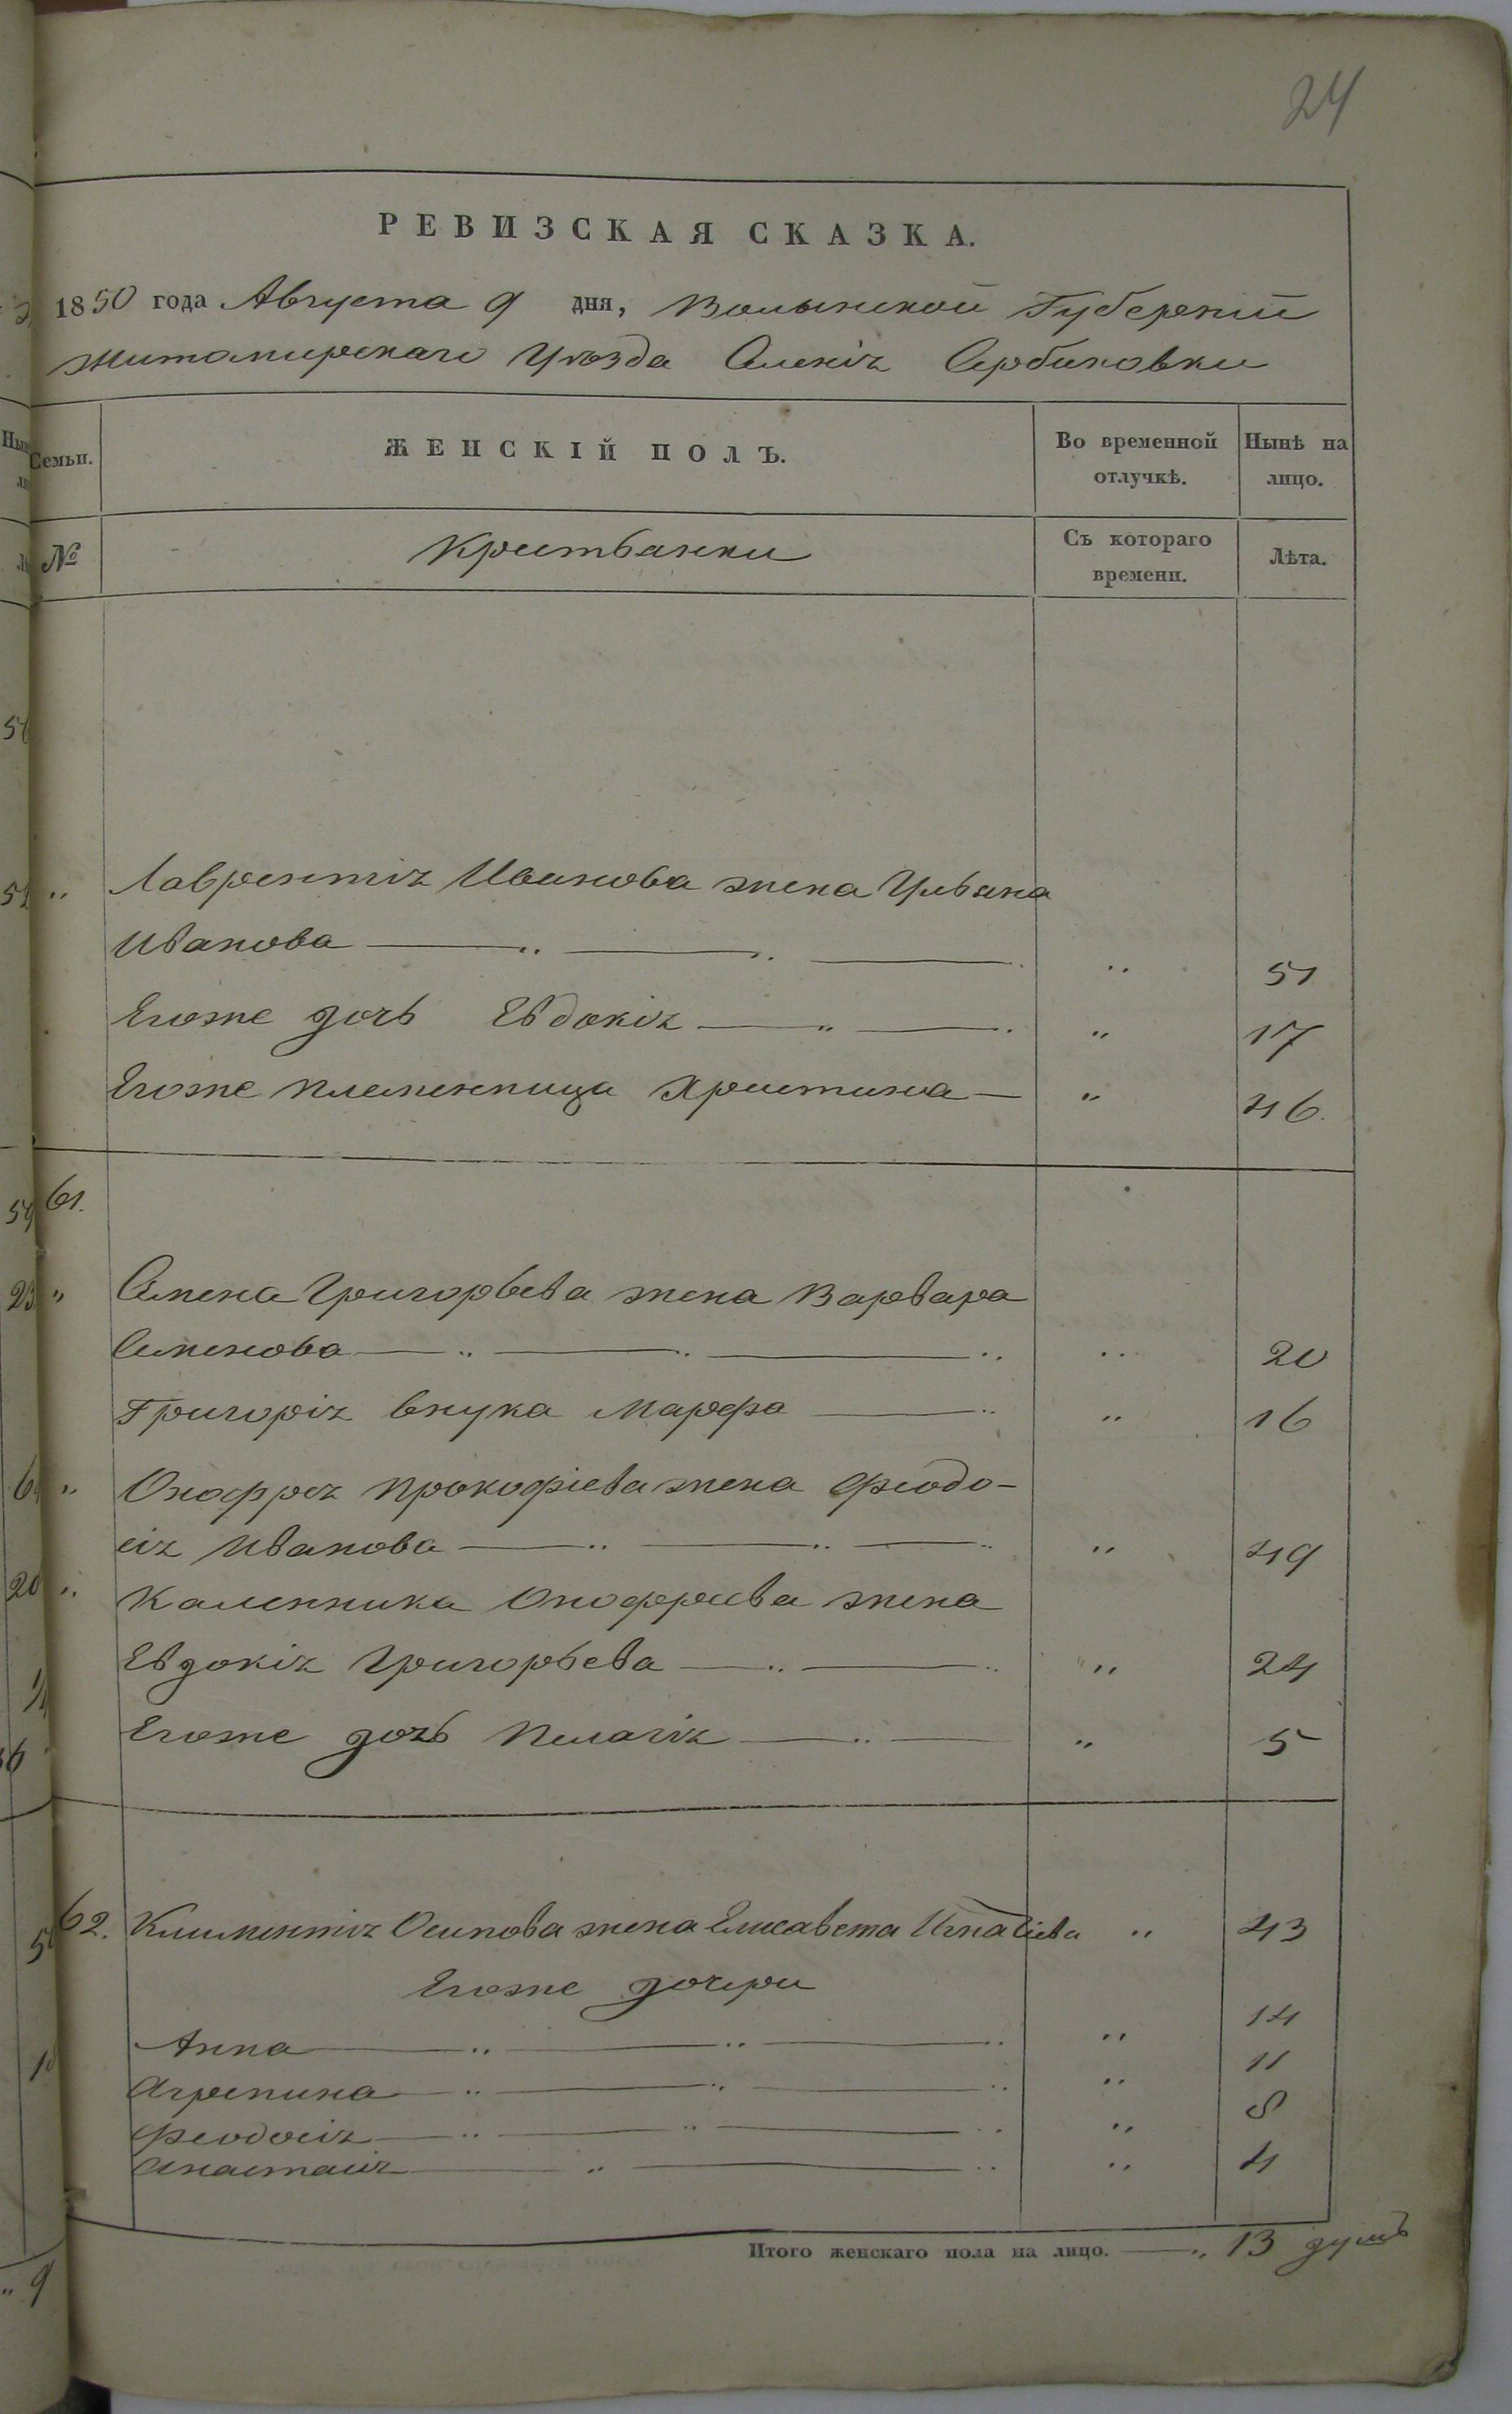 24
РЕВИЗСКАЯ СКАЗКА.
1850 года Августа 9 дня, Волынской Губерніи
Житомирскаго Уѣзда Селенія Сербиновки
Семьи.
ЖЕНСКІЙ ПОЛЪ.
Во временной отлучкѣ.
Нынѣ на лицо.
№
Крестьянки
Съ котораго времени.
Лѣта.
„ Лаврентія Иванова жена Ульяна
Иванова — „ — „ — „ 51
Егоже дочь Евдокія — „ — „ 17
Егоже племенница Христина — „ 46.
61.
„ Семена Григорьева жена Варвара
Семенова — „ — „ — „ „ 20
Григорія внука Марфа — „ „ 16
„ Онофрея Прокофіева жена Феодо-
сія Иванова — „ — „ — „ „ 49
„ Каленника Онофреева жена
Евдокія Григорьева — „ — „ „ 24
Егоже дочь Пелагія — „ — „ 5
62. Климентія Осипова жена Елисавета Игнатіева „ 43
Егоже дочери
Анна — „ — „ — „ „ 14
Агрепина — „ — „ — „ „ 11
Феодосія — „ — „ — „ „ 8
Анастасія — „ — „ „ 4
Итого женскаго пола на лицо. — „ 13 душъ